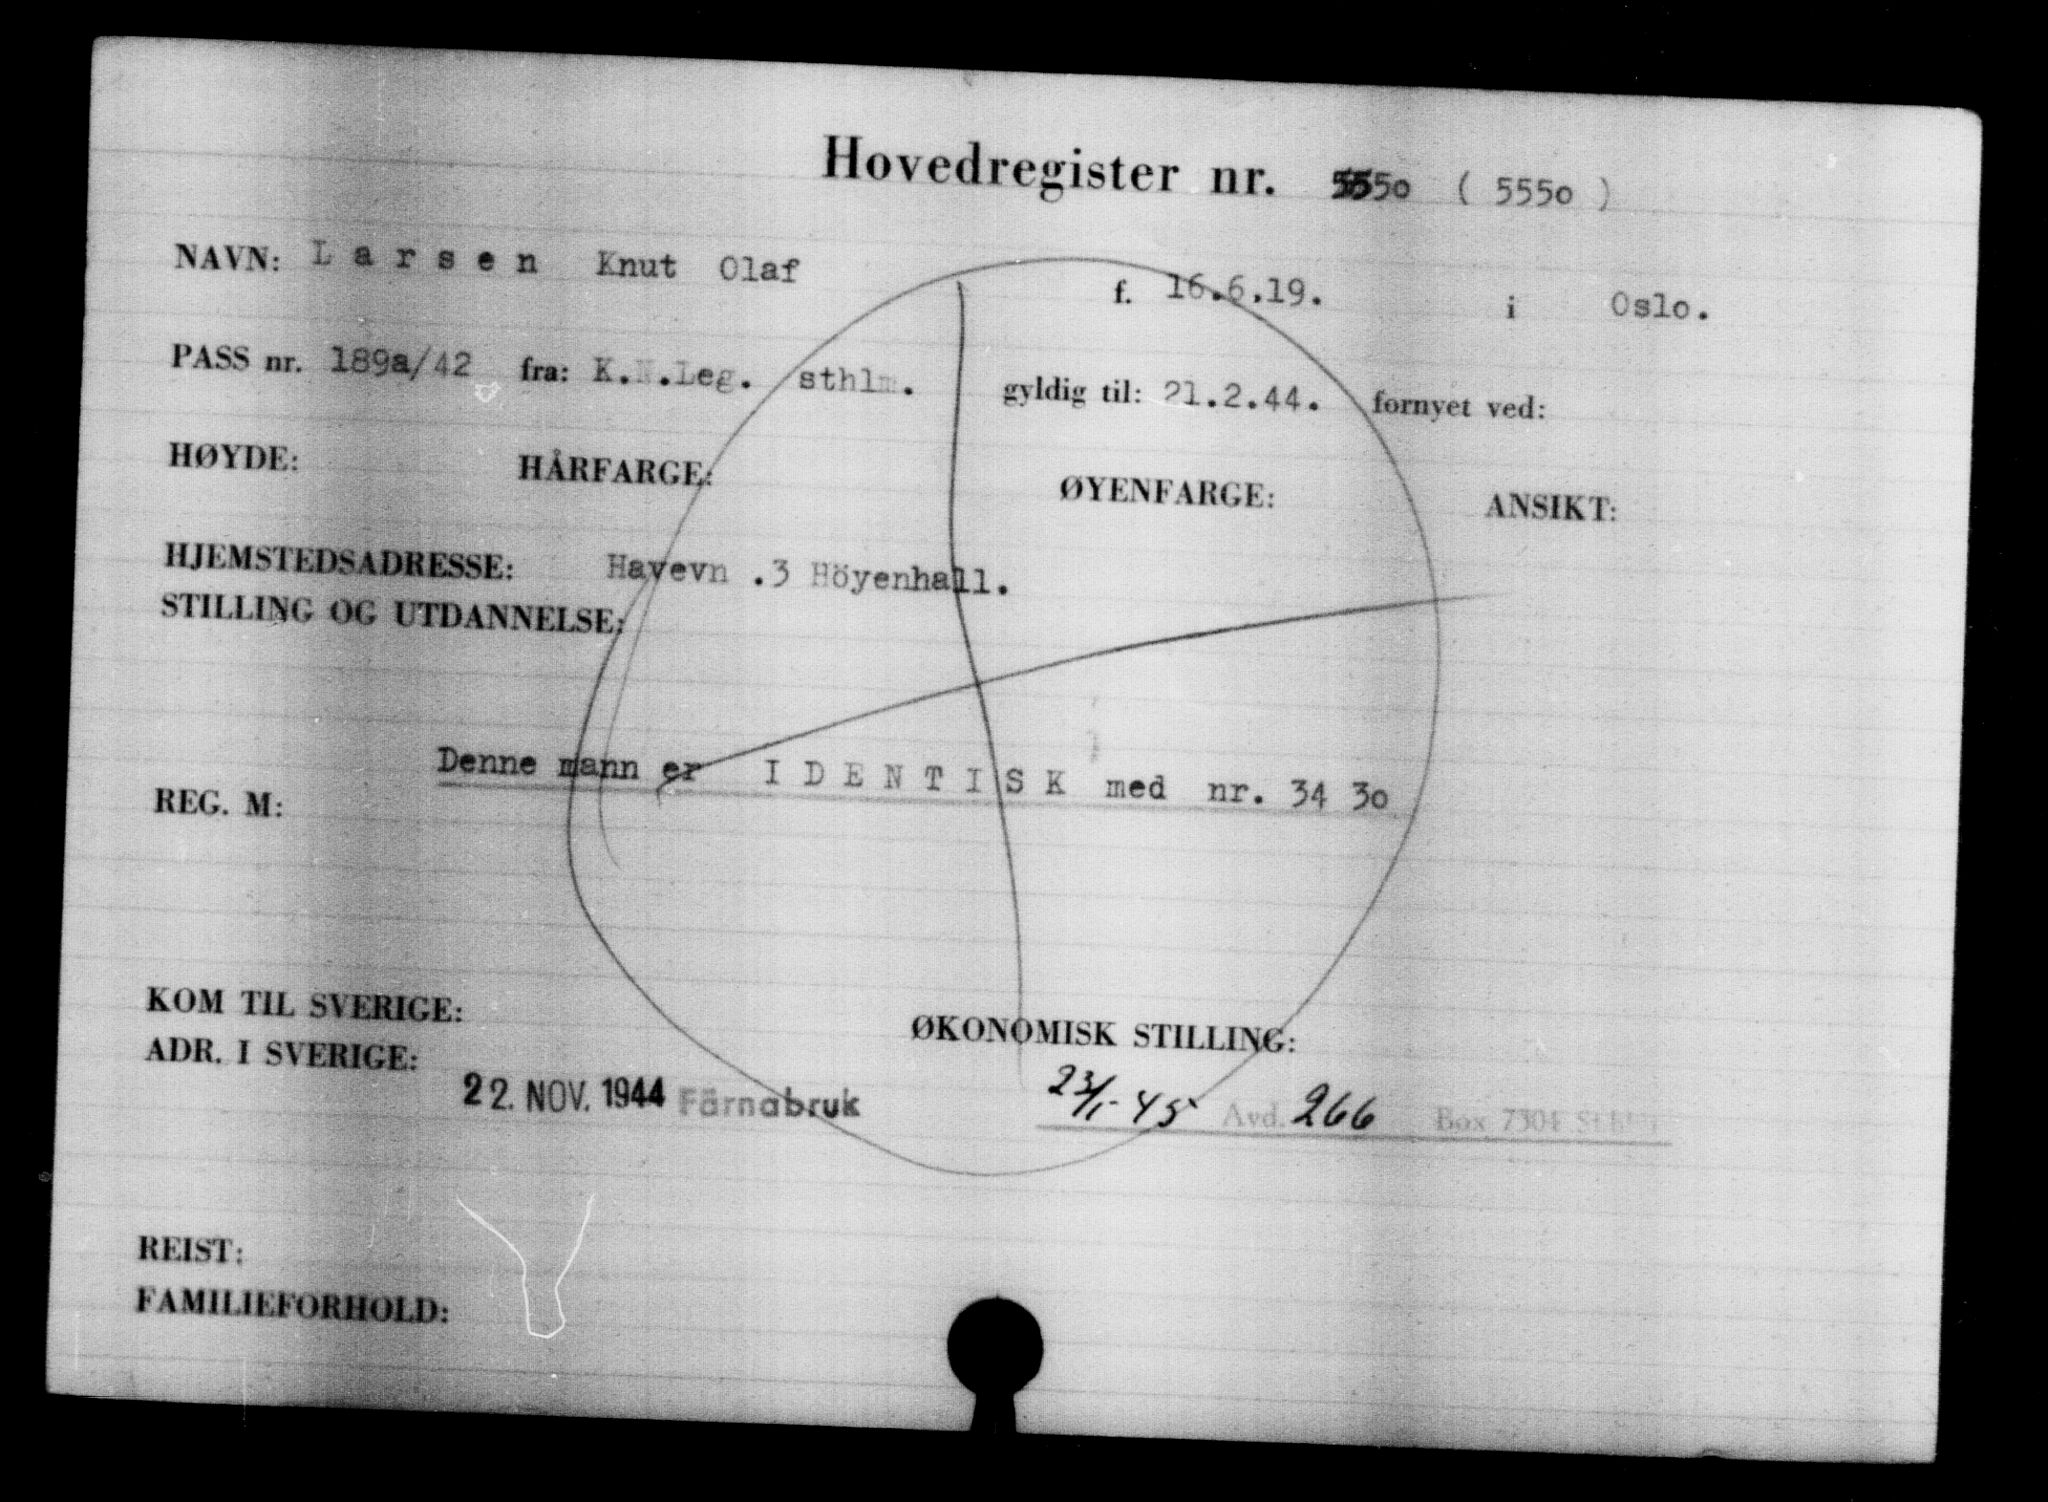 Hovedregister nr. 5550 ( 555o )
NAVN: Larsen Knut Olaf f. 16.6.19. i Oslo.
PASS nr. 189a/42 fra: K.N.Leg. sthlm. gyldig til: 21.2.44. fornyet ved:
HØYDE: HÅRFARGE: ØYENFARGE: ANSIKT:
HJEMSTEDSADRESSE: Havevn .3 Höyenhall.
STILLING OG UTDANNELSE:
Denne mann er IDENTISK med nr. 34 3o
REG. M:
KOM TIL SVERIGE: ØKONOMISK STILLING:
ADR. I SVERIGE:
22. NOV. 1944 Färnabruk 23/1-45 Avd. 266 Box 7304
REIST:
FAMILIEFORHOLD: